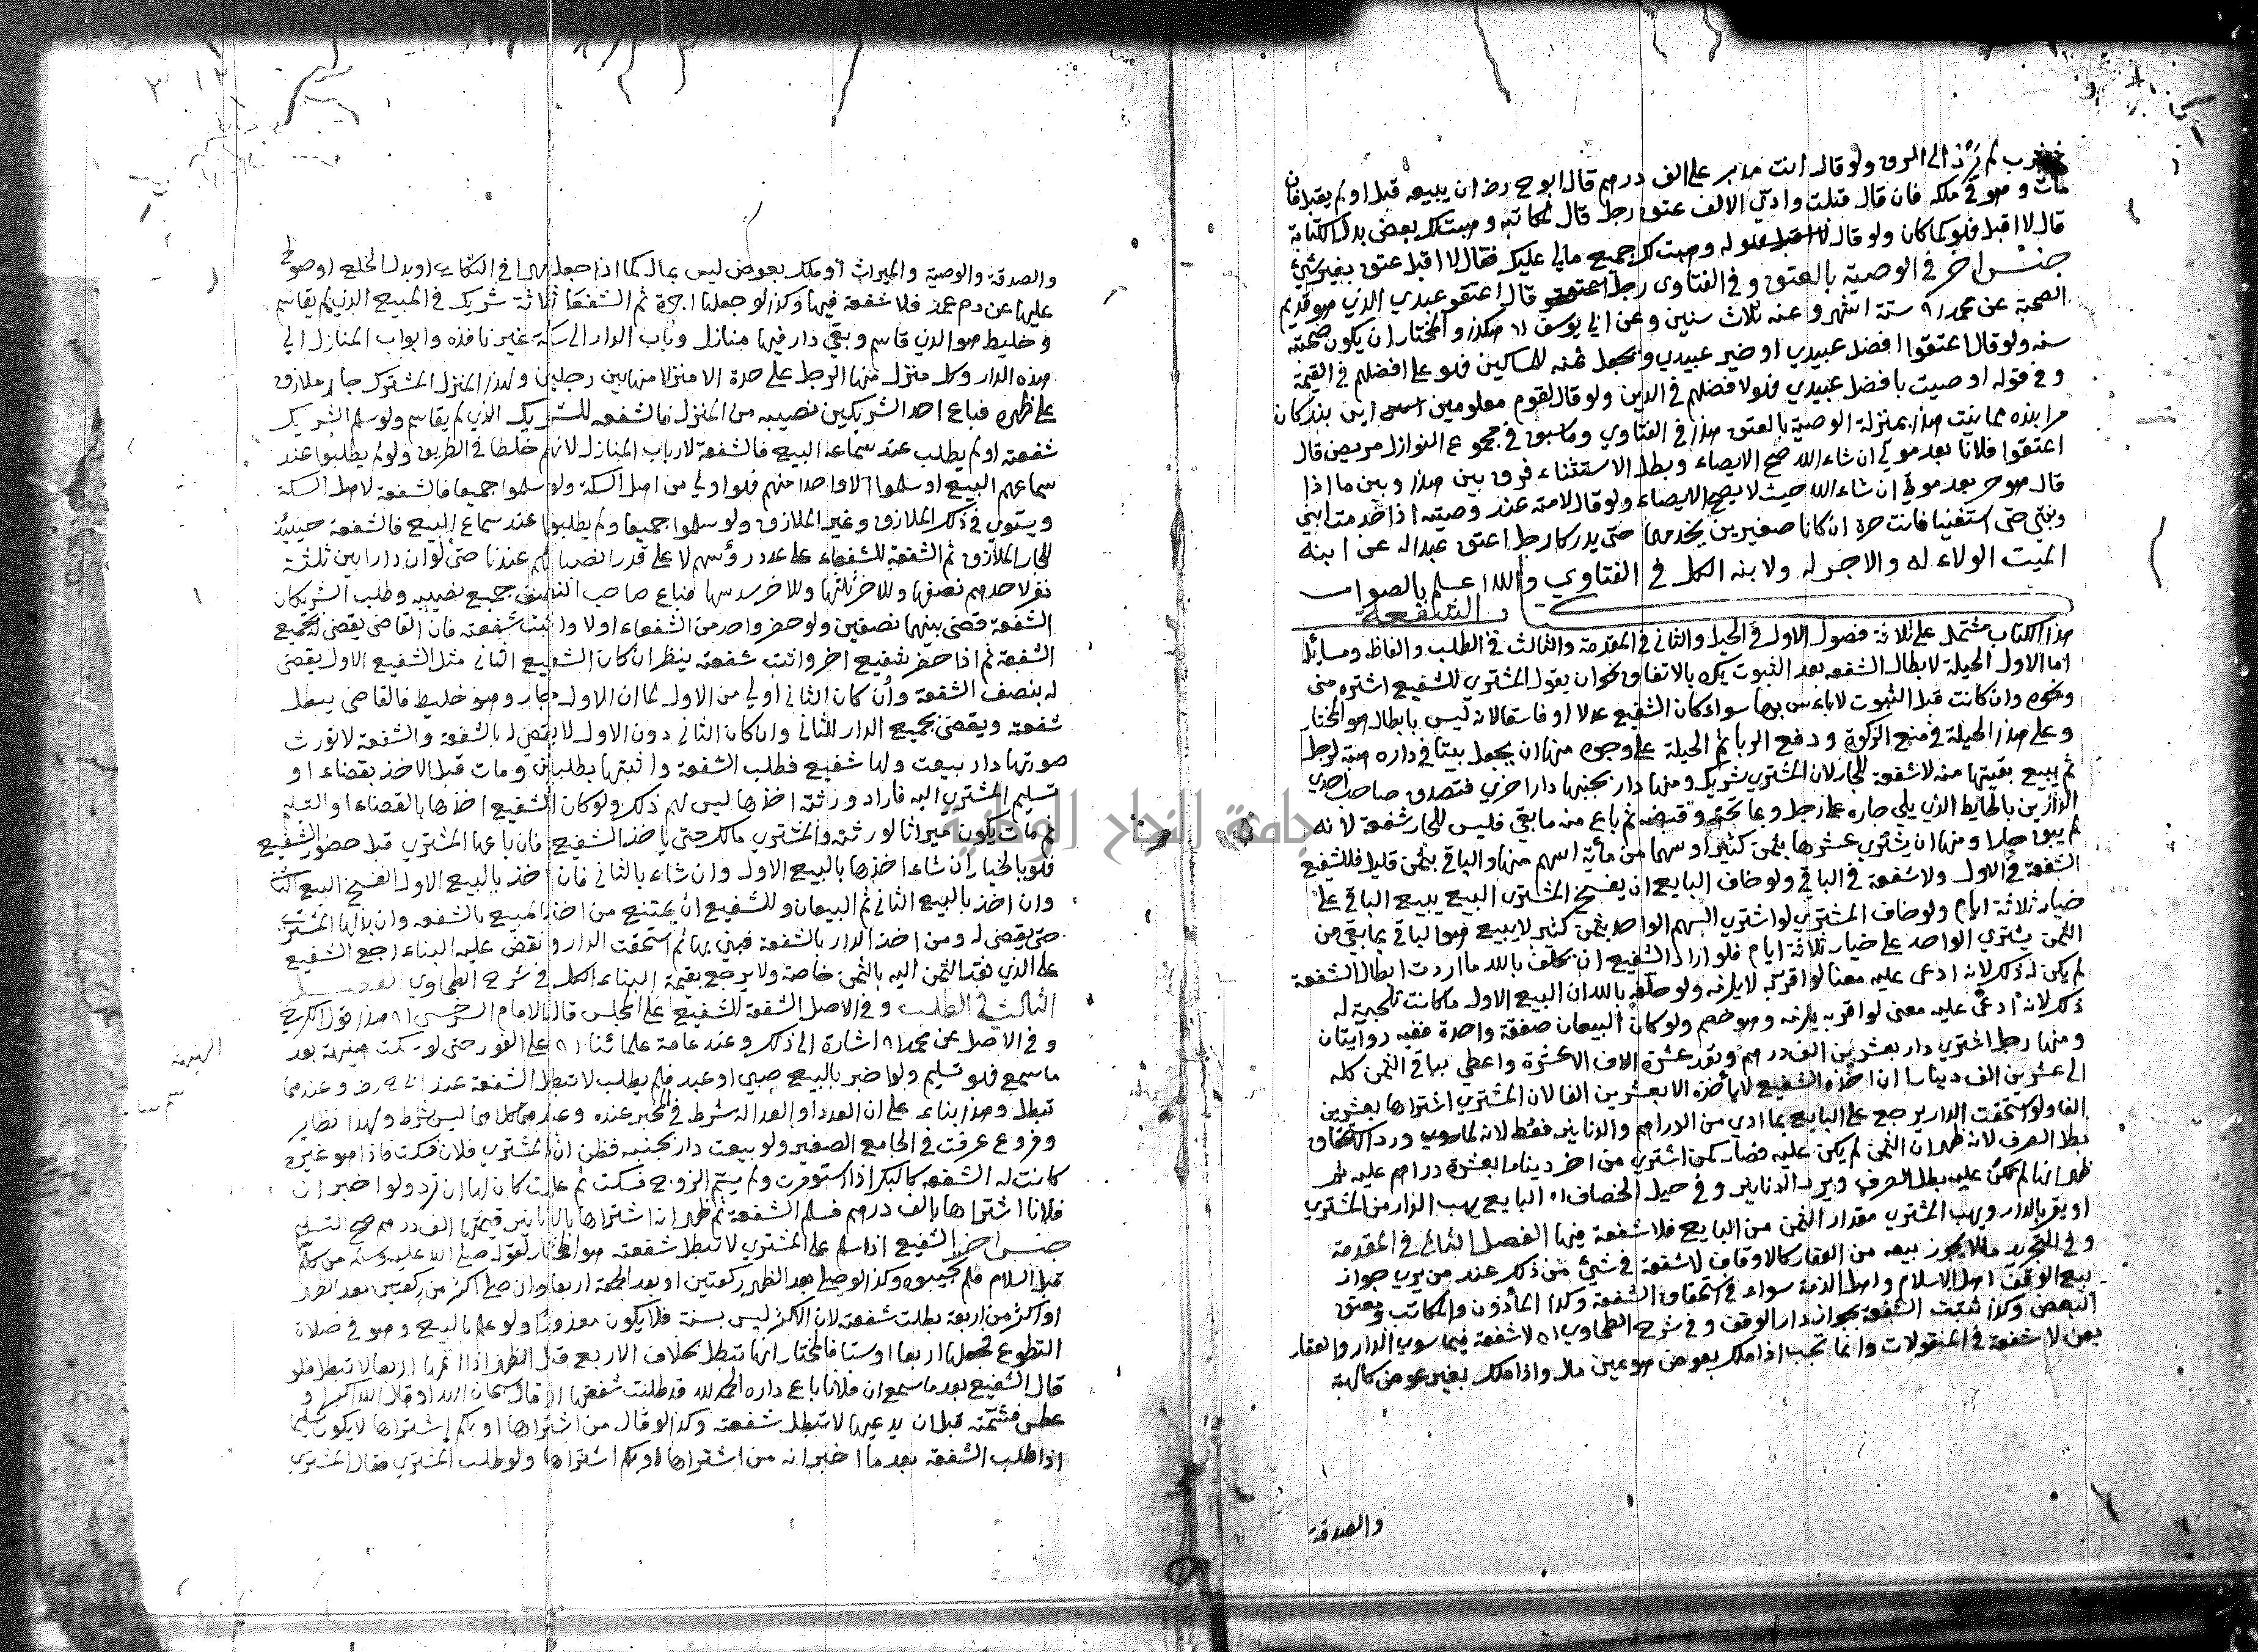 فان قال قبلت وادي الالف عتق رجل قال لمكاتبه وهبت لك بعض بدل الكتابة
قال لا اقبل فلو كما كان ولو قال وهبت لك جميع مالي عليك فقال لا اقبل عتق بغير شيء
جنس اخر في الوصية بالعتق وفي الفتاوى قال اعتقوا عبدي الذي هو قديم
الصحبة عن محمد ستة اشهر وعنه ثلاث سنين وعن ابي يوسف والمختار ان يكون صحبته
سنه ولو قال اعتقوا افضل عبيدي او خير عبيدي ثمنه للمساكين فلو على افضلهم في القيمة
وفي قوله اوصيت بافضل عبيدي فلو لافضلهم في الدين ولو قال لقوم معلومين
هذا بمنزلة الوصية بالعتق هذا في الفتاوي وما سبق في مجموع النوازل مريض قال
اعتقوا فلانا بعد موتي ان شاء الله صح الايصاء وبطل الاستثناء فرق بين هذا وبين ما اذا
قال هو حر بعد موتي ان شاء الله حيث لا يصح الايصاء ولو قال لامته عند وصيته اذا خدمت ابني
وبنتي حتى استغنيا فانت حرة ان كانا صغيرين يخدمهما حتى يدركا رجل اعتق عبدا له عن ابنه
الميت الولاء له والاجر له ولابنه الكل في الفتاوي والله اعلم بالصواب
الشفعة
هذا الكتاب مشتمل على ثلاثة فصول الاول في الحيل والثاني في المقدمة والثالث في الطلب والفاظه ومسايله
اما الاول الحيلة لابطال الشفعه بعد الثبوت يكره بالاتفاق نحو ان يقول المشتري للشفيع اشتره مني
ونحوه وان كانت قبل الثبوت لا باس بها سواء كان الشفيع عدلا او فاسقا لانه ليس بابطال هو المختار
وعلى هذا الحيلة في منع الزكوة ودفع الربا ثم الحيلة على وجوه منها ان يجعل بيتا في داره هبة لرجل
ثم يبيع بقيتها منه لا شفعة للجار لان المشتري شريك ومنها دار بجنبها دار اخري فتصدق صاحب احدي
الدارين بالحايط الذي يلي جاره على رجل وبما تحته وقبضه ثم باع منه ما بقي فليس للجار شفعة لانه
لم يبق جارا ومنها ان يشتري عشرها بثمن كثير او سهما من مائة اسهم منها والباقي بثمن قليل فللشفيع
الشفعة في الاول ولا شفعة في الباقي ولو خاف البايع ان يفسخ المشتري البيع يبيع الباقي على
خيار ثلاثة ايام ولو خاف المشتري لو اشتري السهم الواحد بثمن كثير لا يبيع الباقي بما بقي من
الثمن يشتري الواحد على خيار ثلاثة ايام فلو اراد الشفيع ان يحلف بالله ما اردت ابطال الشفعة
لم يكن له ذلك لانه ادعى عليه معنا لو اقر به لا يلزمه ولو حلفه بالله ان البيع الاول ما كانت تلجية له
ذلك لانه ادعى عليه معنى لو اقر به يلزمه وهو خصم ولو كان البيعان صفقة واحدة ففيه روايتان
ومنها رجل اشتري دار بعشرين الف درهم ونقد عشرة الاف الا عشرة واعطي بباقي الثمن كله
الى عشرين الف دينارا ان اخذه الشفيع لا ياخذه الا بعشرين الفا لان المشتري اشتراها بعشرين
الفا ولو استحقت الدار يرجع على البايع بما ادي من الدراهم والدنانير فقط لانه
بطل الصرف لانه ظهر ان الثمن لم يكن عليه فصار كمن اشتري من اخر دينارا بعشرة دراهم عليه ثم
ظهر انها لم تكن عليه بطل الصرف ويرد الدنانير وفي حيل الخصاف البايع يهب الدار من المشتري
او يقر بالدار ويهب المشتري مقدار الثمن من البايع فلا شفعة فيها الفصل الثاني في المقدمة
وفي التجريد ما لا يجوز بيعه من العقار كالاوقاف لا شفعة في شيئ من ذلك عند من يري جواز
بيع الوقف اهل الاسلام واهل الذمة سواء في استحقاق الشفعة وكذا الماذون والمكاتب ومعتق
البعض وكذا تثبت الشفعة بجوار دار الوقف وفي شرح الطحاوي لا شفعة فيما سوي الدار والعقار
يعني لا شفعة في المنقولات وانما تجب اذا ملك بعوض هو عين مال واذا ملك بغير عوض كالهبة
والصدقة
والصدقة والوصية والميراث او ملك بعوض ليس بمال كما اذا جعل مهرا في النكاح او بدل الخلع او صولح
عليها عن دم عمد فلا شفعة فيها وكذا لو جعلها اجرة ثم الشفعا ثلاثة شريك في المبيع الذي لم يقاسم
وخليط هو الذي قاسم وبقي دار فيها منازل وباب الدار الى سكة غير نافذه وابواب المنازل الي
هذه الدار وكل منزل منها لرجل على حدة الا منزلا منها بين رجلين ولهذا المنزل المشترك جار ملازق
على ظهره فباع احد الشريكين نصيبه من المنزل فالشفعه للشريك الذي لم يقاسم ولو سلم الشريك
شفعته او لم يطلب عند سماعه البيع فالشفعة لارباب المنازل لانهم خلطا في الطريق ولو لم يطلبوا عند
سماعهم البيع او سلموا الا واحدا منهم فلو اولي من اهل السكة ولو سلموا جميعا فالشفعة لاهل السكة
ويستوي في ذلك الملازق وغير الملازق ولو سلموا جميعا ولم يطلبوا عند سماع البيع فالشفعة حينئذ
للجار الملازق ثم الشفعة للشفعاء على عدد رؤسهم لا على قدر انصبائهم عندنا حتى لو ان دارا بين ثلثة
نفر لاحدهم نصفها وللاخر ثلثها وللاخر سدسها فباع صاحب النصف جميع نصيبه وطلب الشريكان
الشفعة قضى بينهما نصفين ولو حضر واحد من الشفعاء اولا واثبت شفعته فان القاضي يقضي له بجميع
الشفعة ثم اذا حضر شفيع اخر واثبت شفعته ينظر ان كان الشفيع الثاني مثل الشفيع الاول يقضى
له بنصف الشفعة وان كان الثاني اولي من الاول كما ان الاول جار وهو خليط فالقاضي يبطل
شفعته ويقضى بجميع الدار للثاني وان كان الثاني دون الاول لا يقضي له بالشفعة والشفعة لا تورث
صورتها دار بيعت ولها شفيع فطلب الشفعة واثبتها بطلبين ومات قبل الاخذ بقضاء او
تسليم المشتري اليه فاراد ورثته اخذها ليس لهم ذلك ولو كان الشفيع اخذها بالقضاء او التسليم
ثم مات يكون ميراثا لورثته والمشتري مالك حتى ياخذ الشفيع فان باعها المشتري قبل حضور الشفيع
فلو بالخيار ان شاء اخذها بالبيع الاول وان شاء بالثاني فان اخذ بالبيع الاول انفسخ البيع الثاني
وان اخذ بالبيع الثاني تم البيعان وللشفيع ان يمتنع من اخذ المبيع بالشفعه وان بذلها المشتري
حتى يقضى له ومن اخذ الدار بالشفعة فبني بها ثم استحقت الدار ونقض عليه البناء رجع الشفيع
على الذي نقد الثمن اليه بالثمن خاصة ولا يرجع بقيمة البناء الكل في شرح الطحاوي الفصل
الثالث في الطلب وفي الاصل الشفعة للشفيع على المجلس قال الامام السرخسي هذا قول الكرخي
وفي الاصل عن محمد اشارة الى ذلك وعند عامة علمائنا على الفور حتى لو سكت هنيهة بعد
ما سمع فلو تسليم ولو اخبر بالبيع صبي او عبد فلم يطلب لا تبطل الشفعة عند وعندهما
تبطل وهذا بناء على ان العدد او العدالة شرط في المخبر عنده وعندهما كلاهما ليس شرط ولهذا نظاير
وفروع عرفت في الجامع الصغير ولو بيعت دار بجنبه فظن ان المشتري فلان فسكت فاذا هو غيره
كانت له الشفعه كالبكر اذا استومرت ولم يسم الزوج فسكت ثم علمت كان لها ان ترد ولو اخبر ان
فلانا اشتراها بالف درهم فسلم الشفعة ثم ظهر انه اشتراها بالدنانير قيمتها الف درهم صح التسليم
جنس اخر الشفيع اذا سلم على المشتري لا تبطل شفعته هو المختار لقوله صلى الله عليه وسلم من كلم
قبل السلام فلم تجيبوه وكذا لو صلى بعد الظهر ركعتين او بعد الجمعة اربعا وان صلى اكثر من ركعتين بعد الظهر
او اكثر من اربعة بطلت شفعته لان الاكثر ليس بسنة فلا يكون معذورا ولو علم بالبيع وهو في صلاة
التطوع فجعلها اربعا او ستا فالمختار انها تبطل بخلاف الاربع قبل الظهر اذا اتمها اربعا لا تبطل فلو
قال الشفيع بعد ما سمع ان فلانا باع داره الحمد لله قد طلبت شفعتها او قال سبحان الله او قال الله اكبر او
عطس فشمته قبل ان يدعيها لا تبطل شفعته وكذا لو قال من اشتراها او بكم اشتراها لا يكون تسليما
اذا طلب الشفعة بعد ما اخبر انه من اشتراها او بكم اشتراها ولو طلب المشتري فقال المشتري